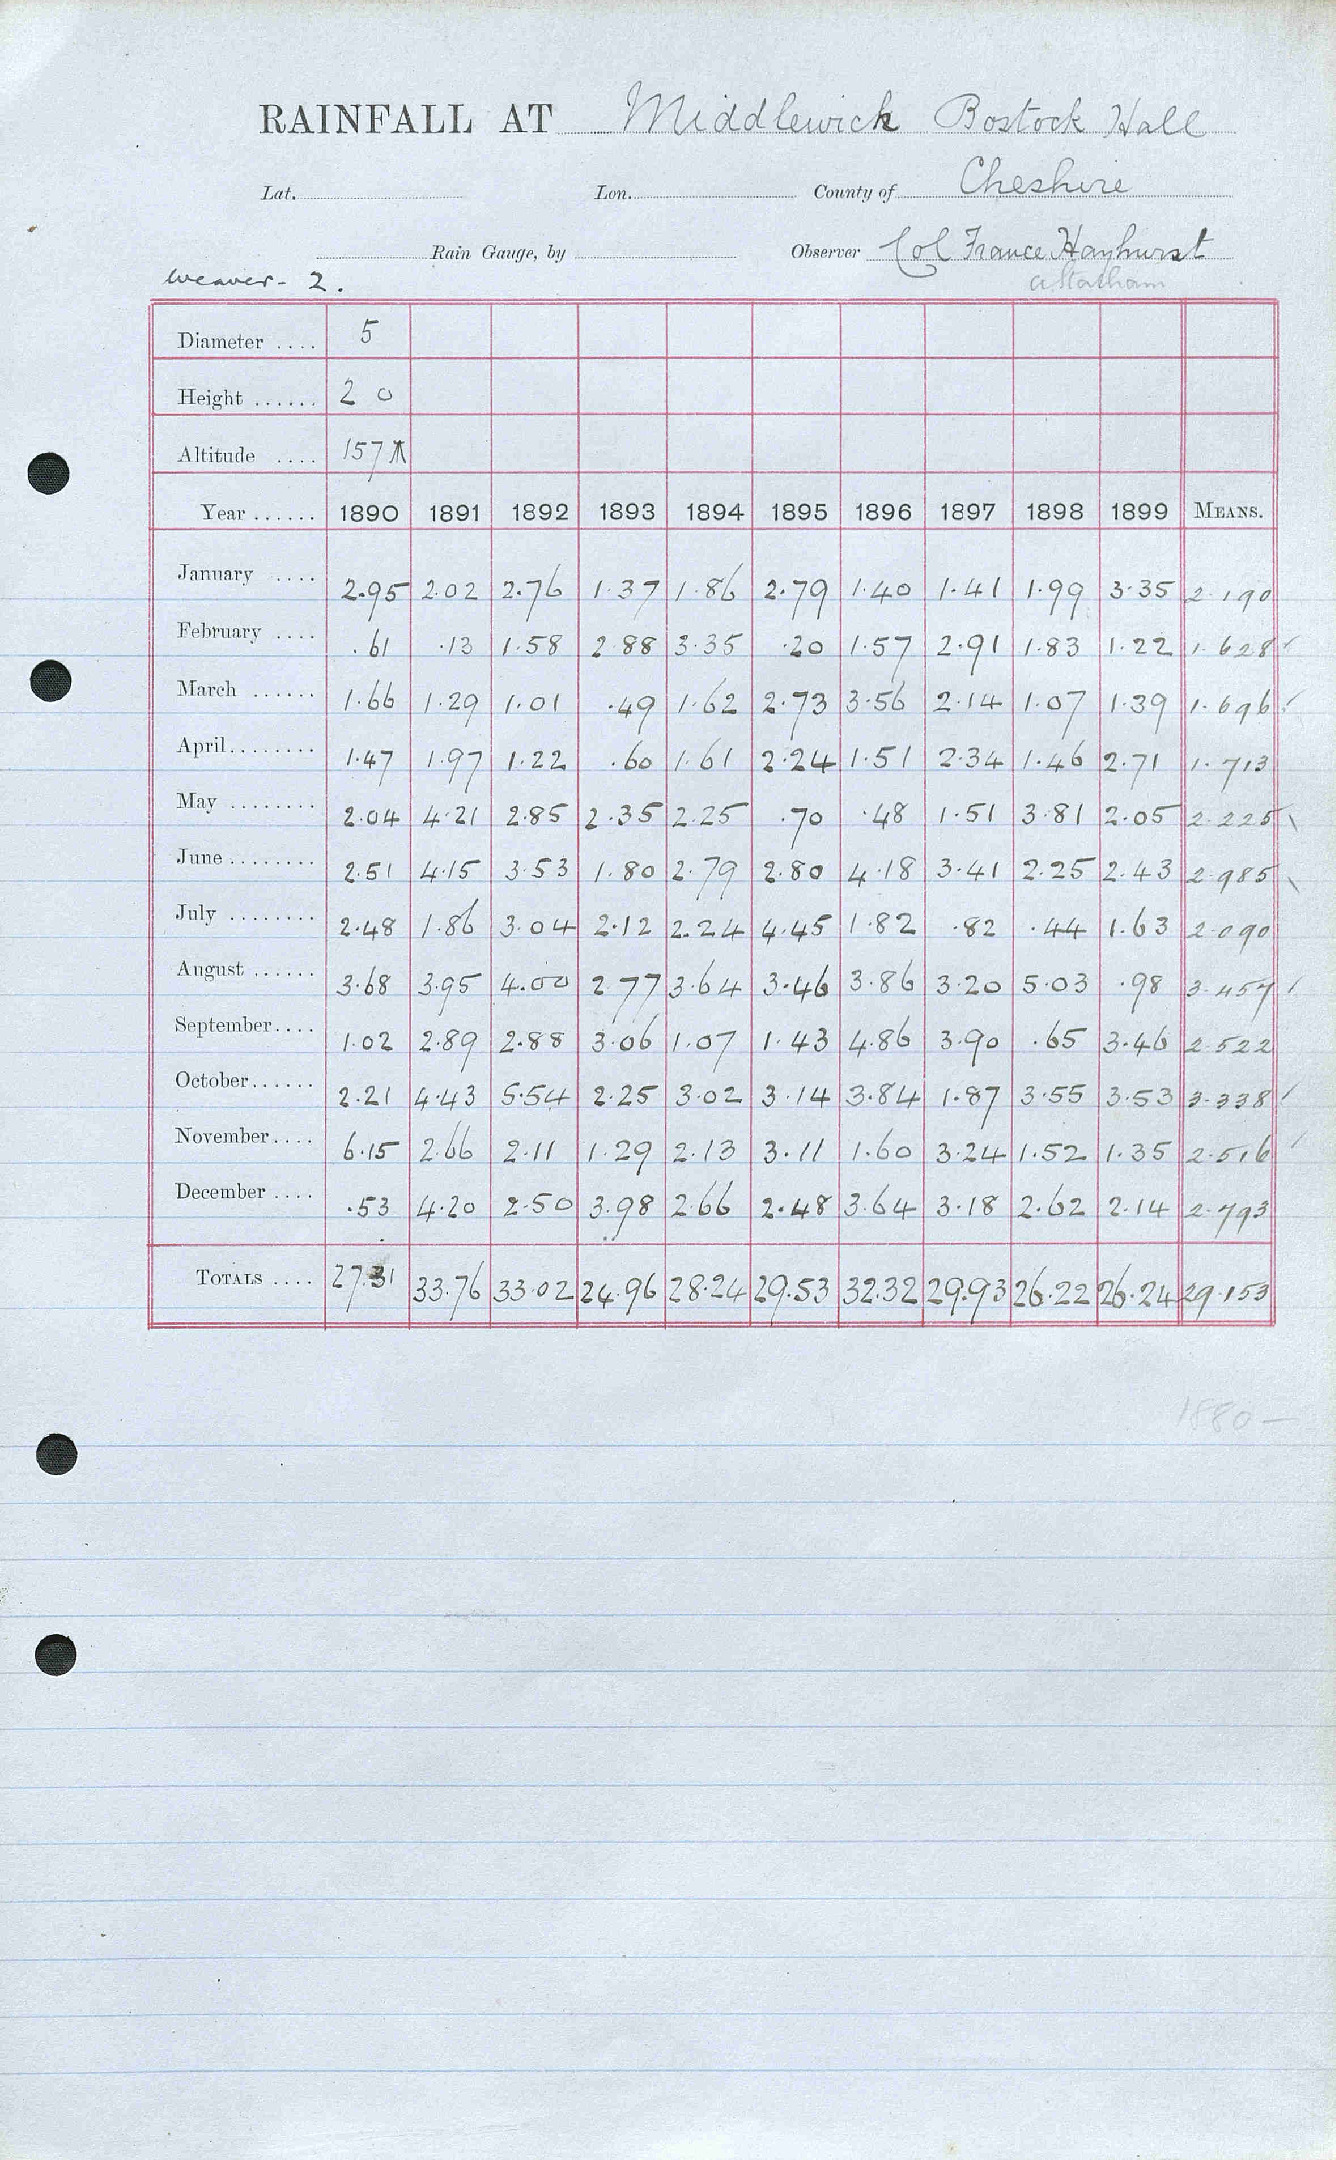 RAINFALL AT Middlewich Bostock Hall
Lat. Lon. County of Cheshire
Rain Gauge, by Observer Col France Hayhurst
Weaver - 2. A Statham
Diameter .... 5
Height ...... 2 0
Altitude .... 157
Year ...... 1890 1891 1892 1893 1894 1895 1896 1897 1898 1899 MEANS.
January .... 2.95 2.02 2.76 1.37 1.86 2.79 1.40 1.41 1.99 3.35 2.190
February .... .61 .13 1.58 2.88 3.35 .20 1.57 2.91 1.83 1.22 1.628
March ...... 1.66 1.29 1.01 .49 1.62 2.73 3.56 2.14 1.07 1.39 1.696
April........ 1.47 1.97 1.22 .60 1.61 2.24 1.51 2.34 1.46 2.71 1.713
May ........ 2.04 4.21 2.85 2.35 2.25 .70 .48 1.51 3.81 2.05 2.225
June ........ 2.51 4.15 3.53 1.80 2.79 2.80 4.18 3.41 2.25 2.43 2.985
July ........ 2.48 1.86 3.04 2.12 2.24 4.45 1.82 .82 .44 1.63 2.090
August ...... 3.68 3.95 4.00 2.77 3.64 3.46 3.86 3.20 5.03 .98 3.457
September.... 1.02 2.89 2.88 3.06 1.07 1.43 4.86 3.90 .65 3.46 2.522
October...... 2.21 4.43 5.54 2.25 3.02 3.14 3.84 1.87 3.55 3.53 3.338
November.... 6.15 2.66 2.11 1.29 2.13 3.11 1.60 3.24 1.52 1.35 2.516
December .... .53 4.20 2.50 3.98 2.66 2.48 3.64 3.18 2.62 2.14 2.793
TOTALS .... 27.31 33.76 33.02 24.96 28.24 29.53 32.32 29.93 26.22 26.24 29.153
1880 —